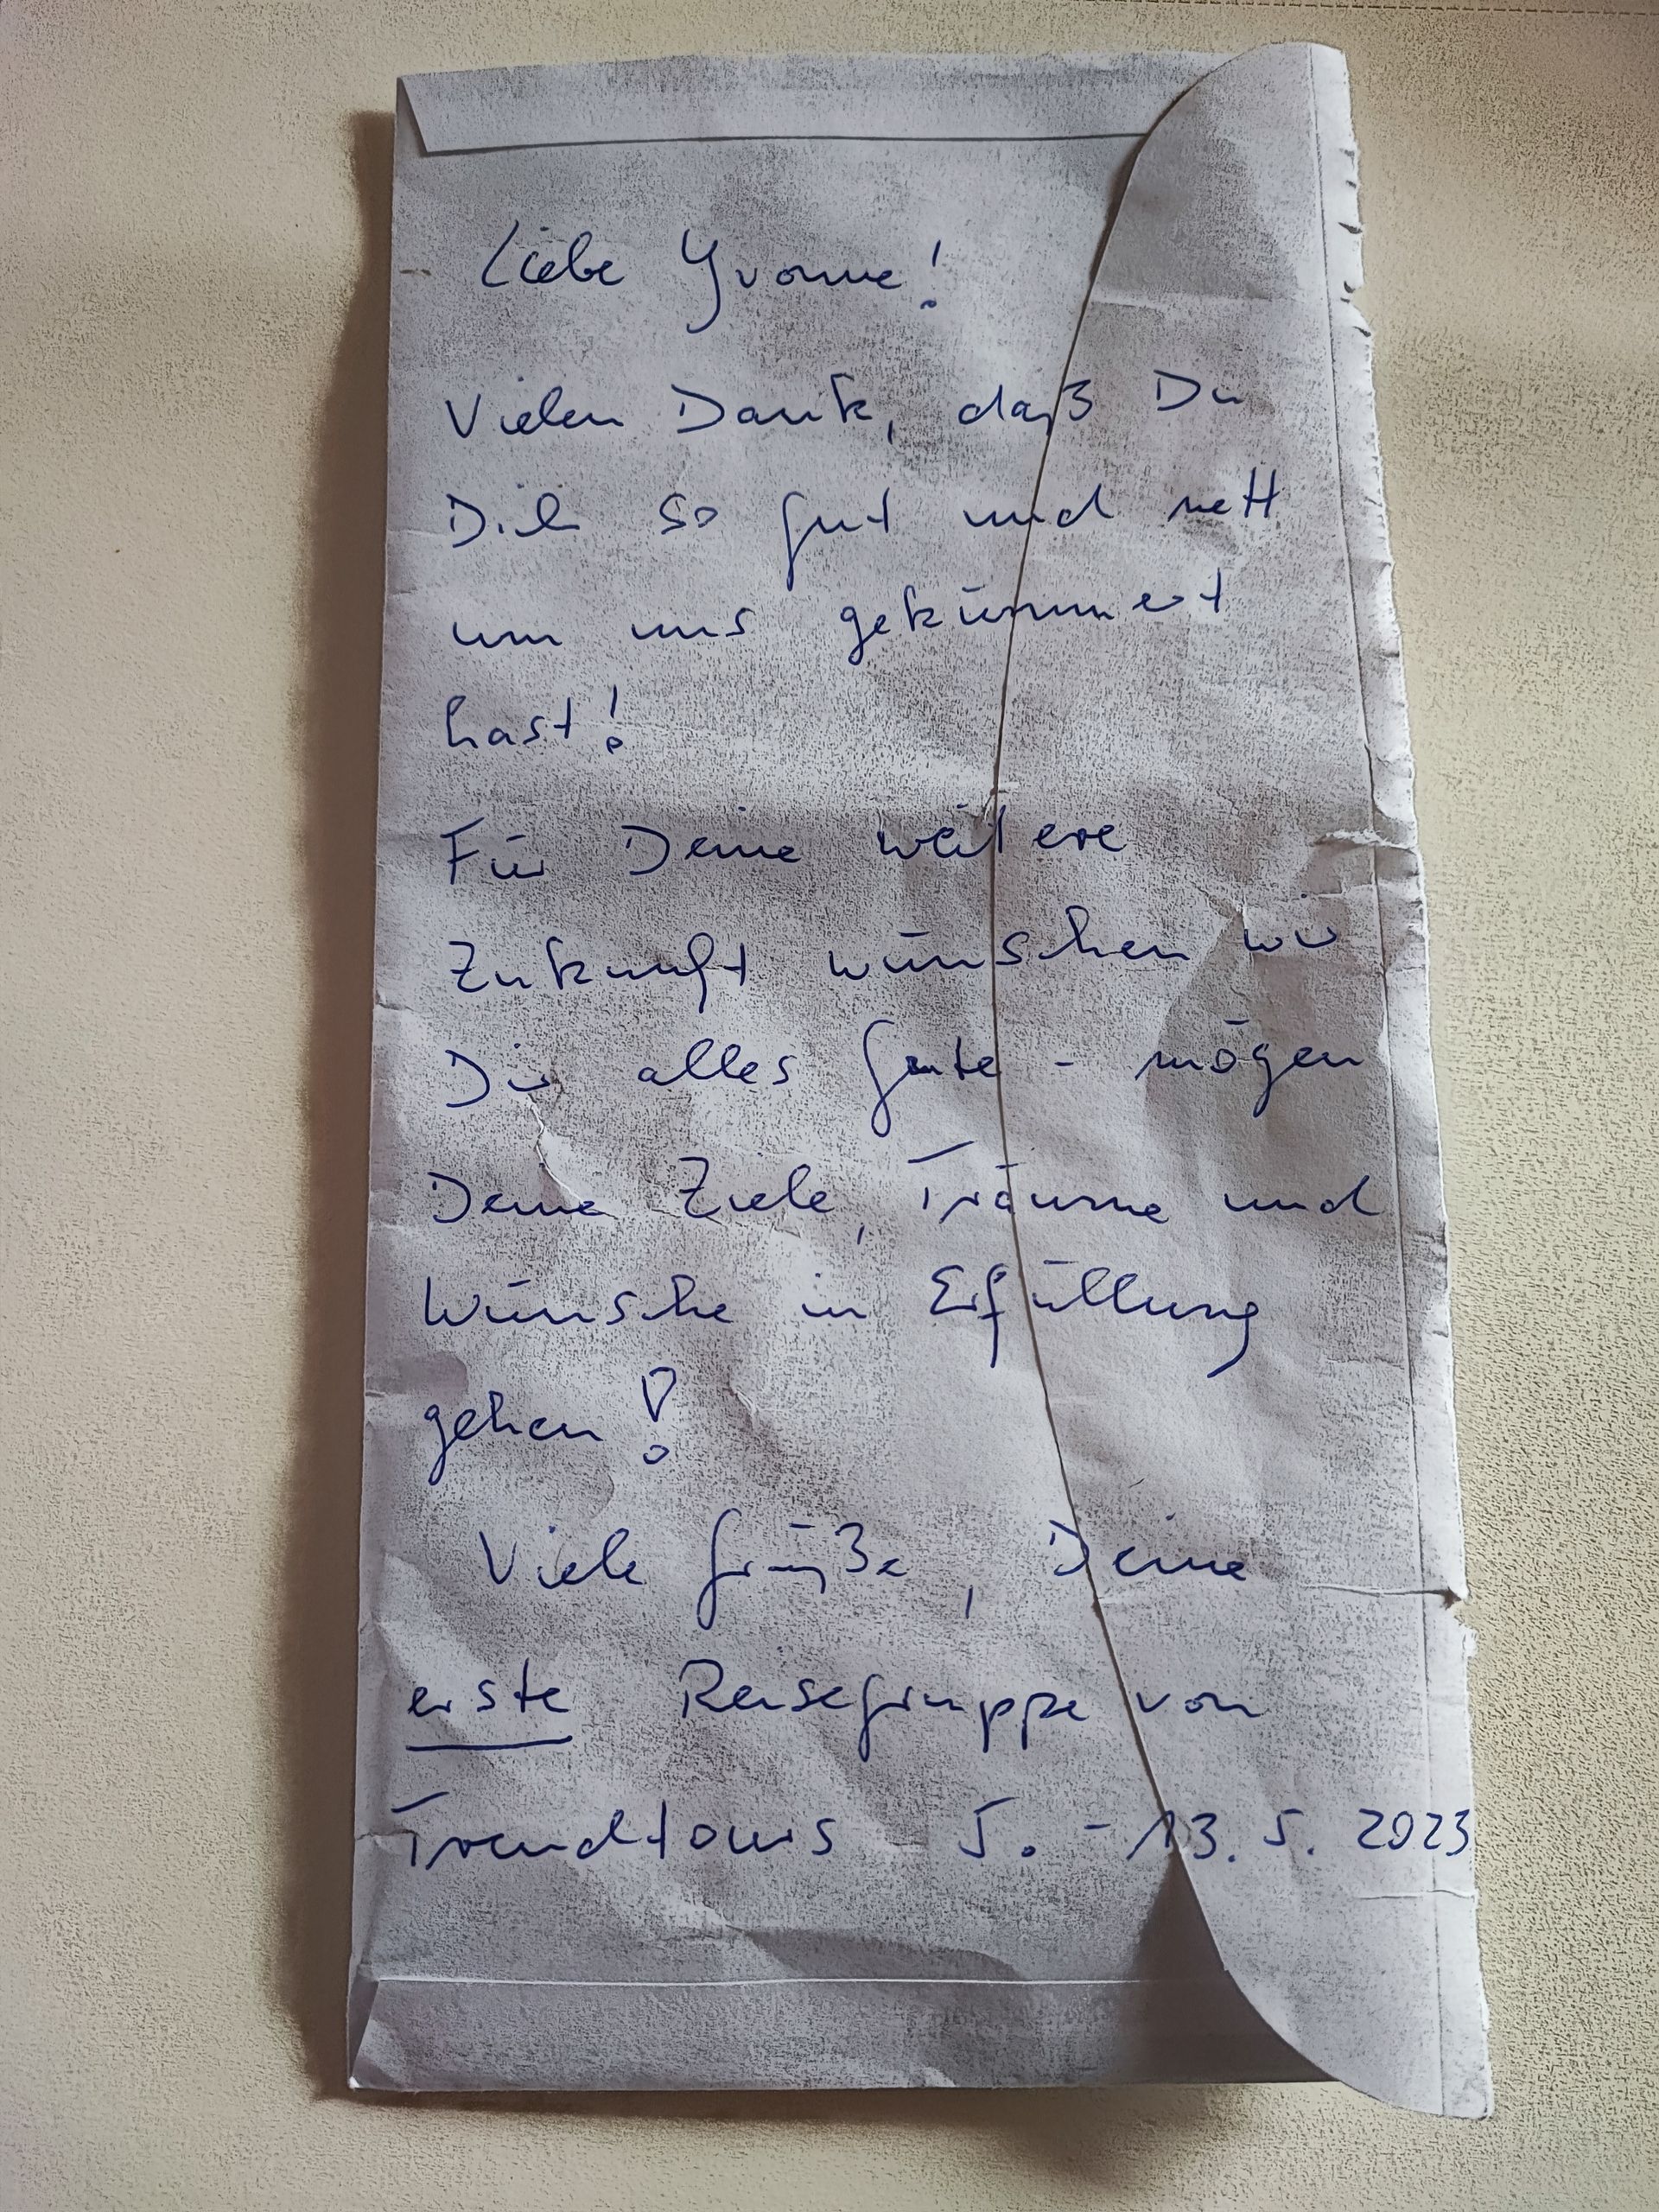 Liebe Yvonne!
Vielen Dank, daß Du
Dich so gut und nett
um uns gekümmert
hast!
Für Deine weitere
Zukunft wünschen wir
Dir alles Gute - mögen
Deine Ziele, Träume und
Wünsche in Erfüllung
gehen!
Viele Grüße, Deine
erste Reisegruppe von
Trendtours 5. - 13. 5. 2023